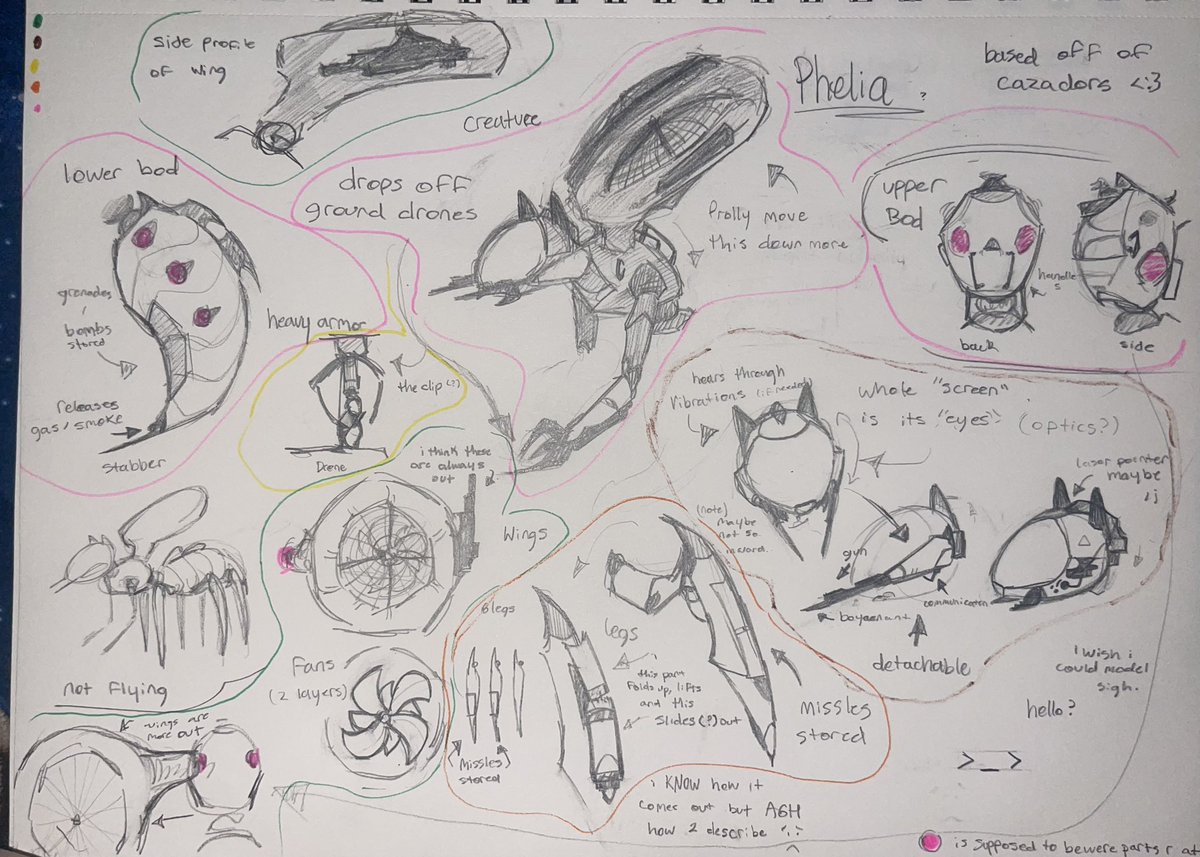 side profile
of wing
creature
Phelia ?
based off of
cazadors <:3
lower bod
drops off
ground drones
Prolly move
this down more
upper
Bod
handle
s
back
side
grenades
/
bombs
stored
releases
gas/smoke
stabber
heavy armor
the clip (?)
Drone
hears through
vibrations (if needed)
whole "screen"
is its "eyes" (optics?)
laser pointer
maybe
;j
i think these
are always
out
?
Wings
(note)
maybe
not so
inward.
gun
communicator
detachable
6 legs
legs
this part
folds up, lifts
and this
slides (?) out
missles
stored
Missles
stored
i KNOW how it
comes out but AGH
how 2 describe
not flying
Fans
(2 layers)
wings are
more out
i wish i
could model
sigh.
hello?
>_>
is supposed to be were parts r at